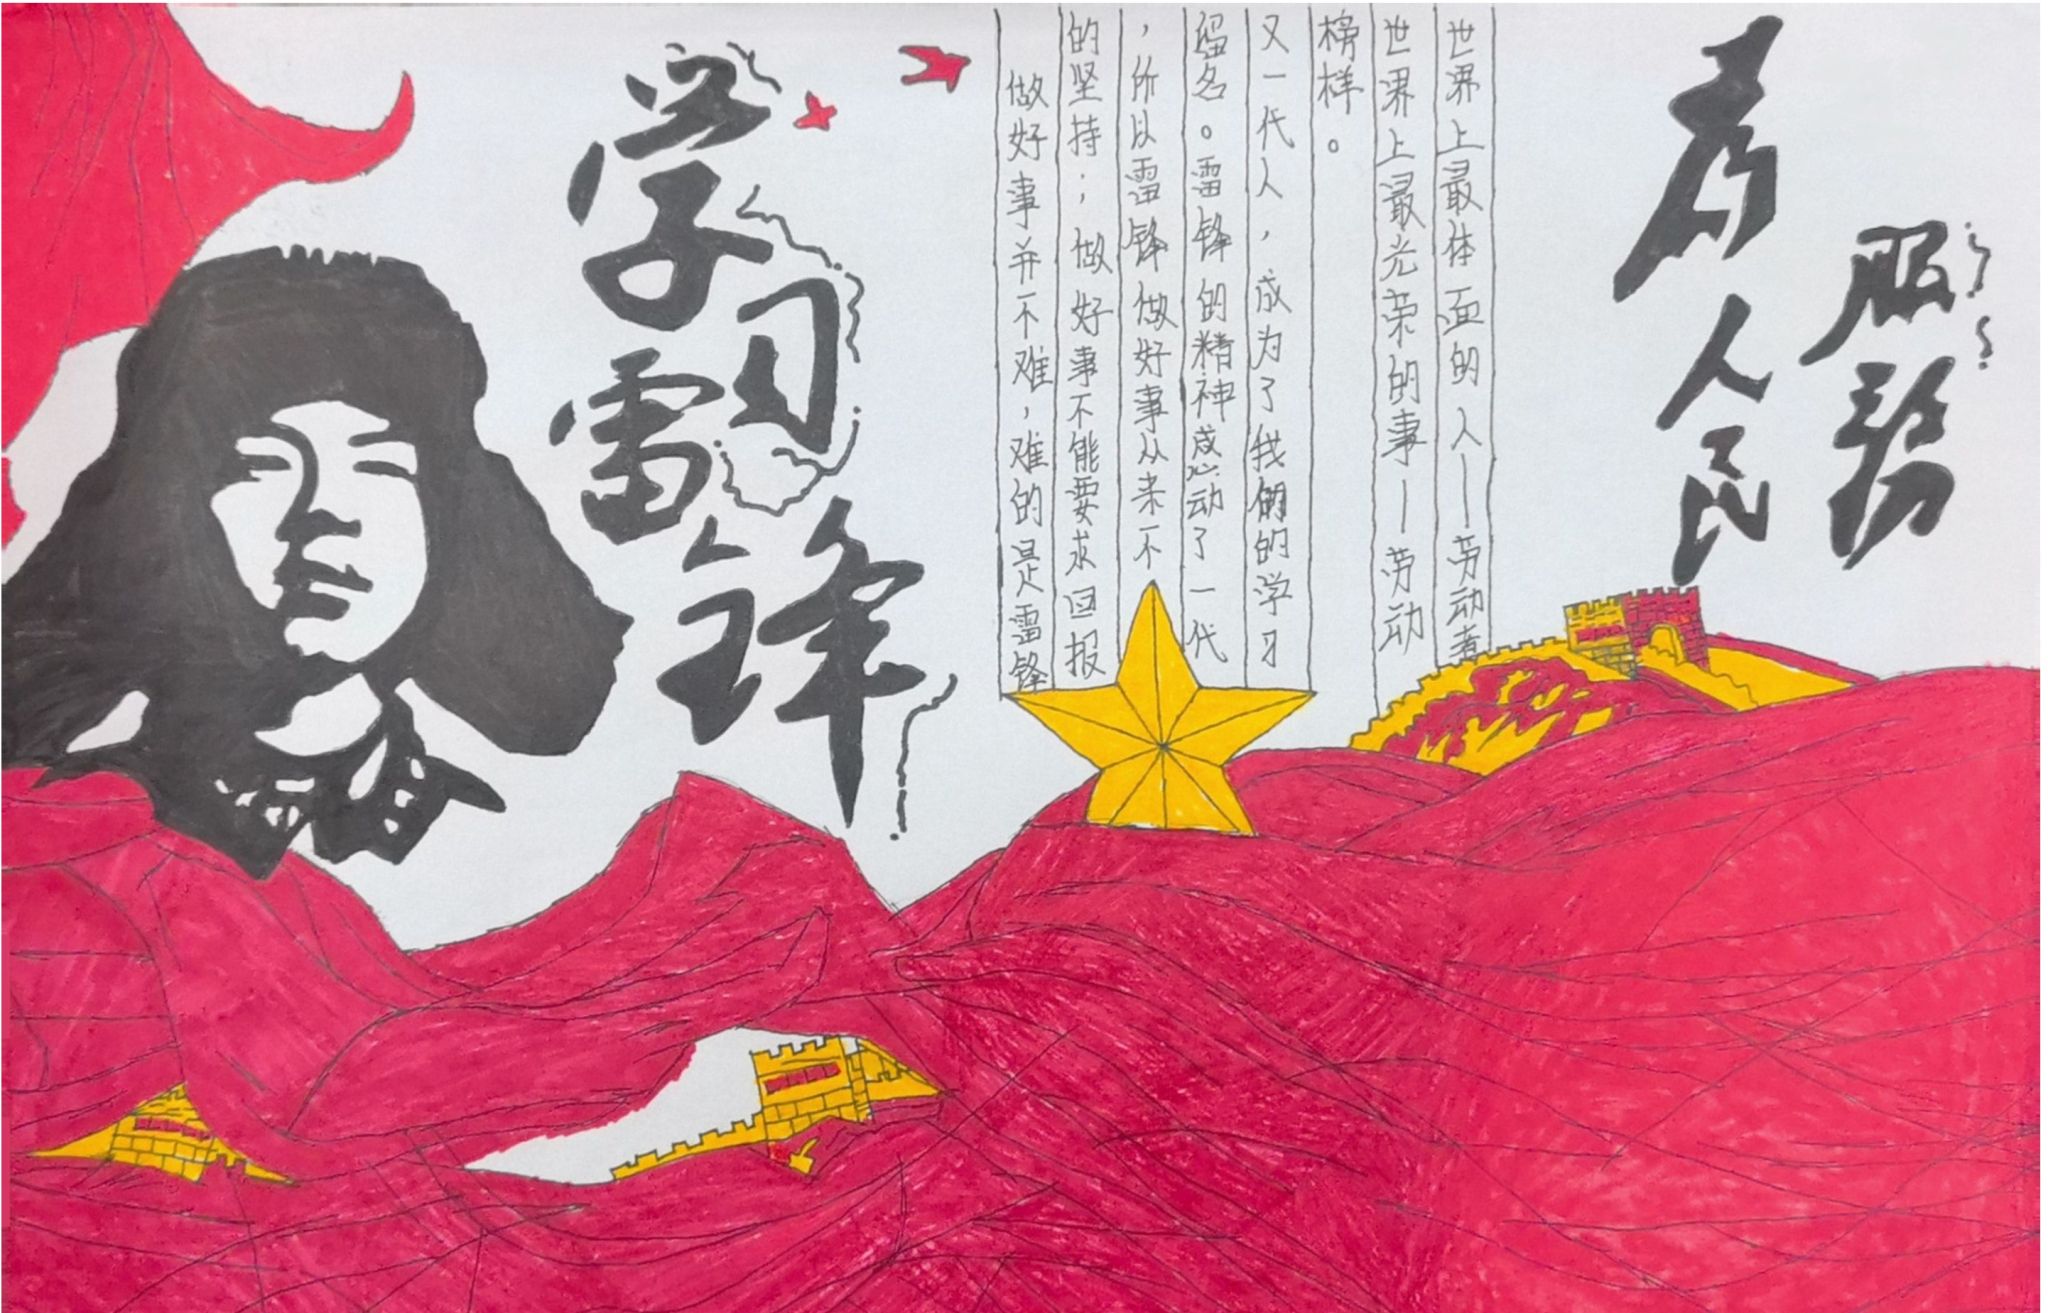 学习
雷锋
做好事并不难，难的是雷锋
的坚持；做好事不能要求回报
，所以雷锋做好事从来不
留名。雷锋的精神感动了一代
又一代人，成为了我们的学习
榜样。
世界上最光荣的事—劳动
世界上最体面的人—劳动者
為人民
服務